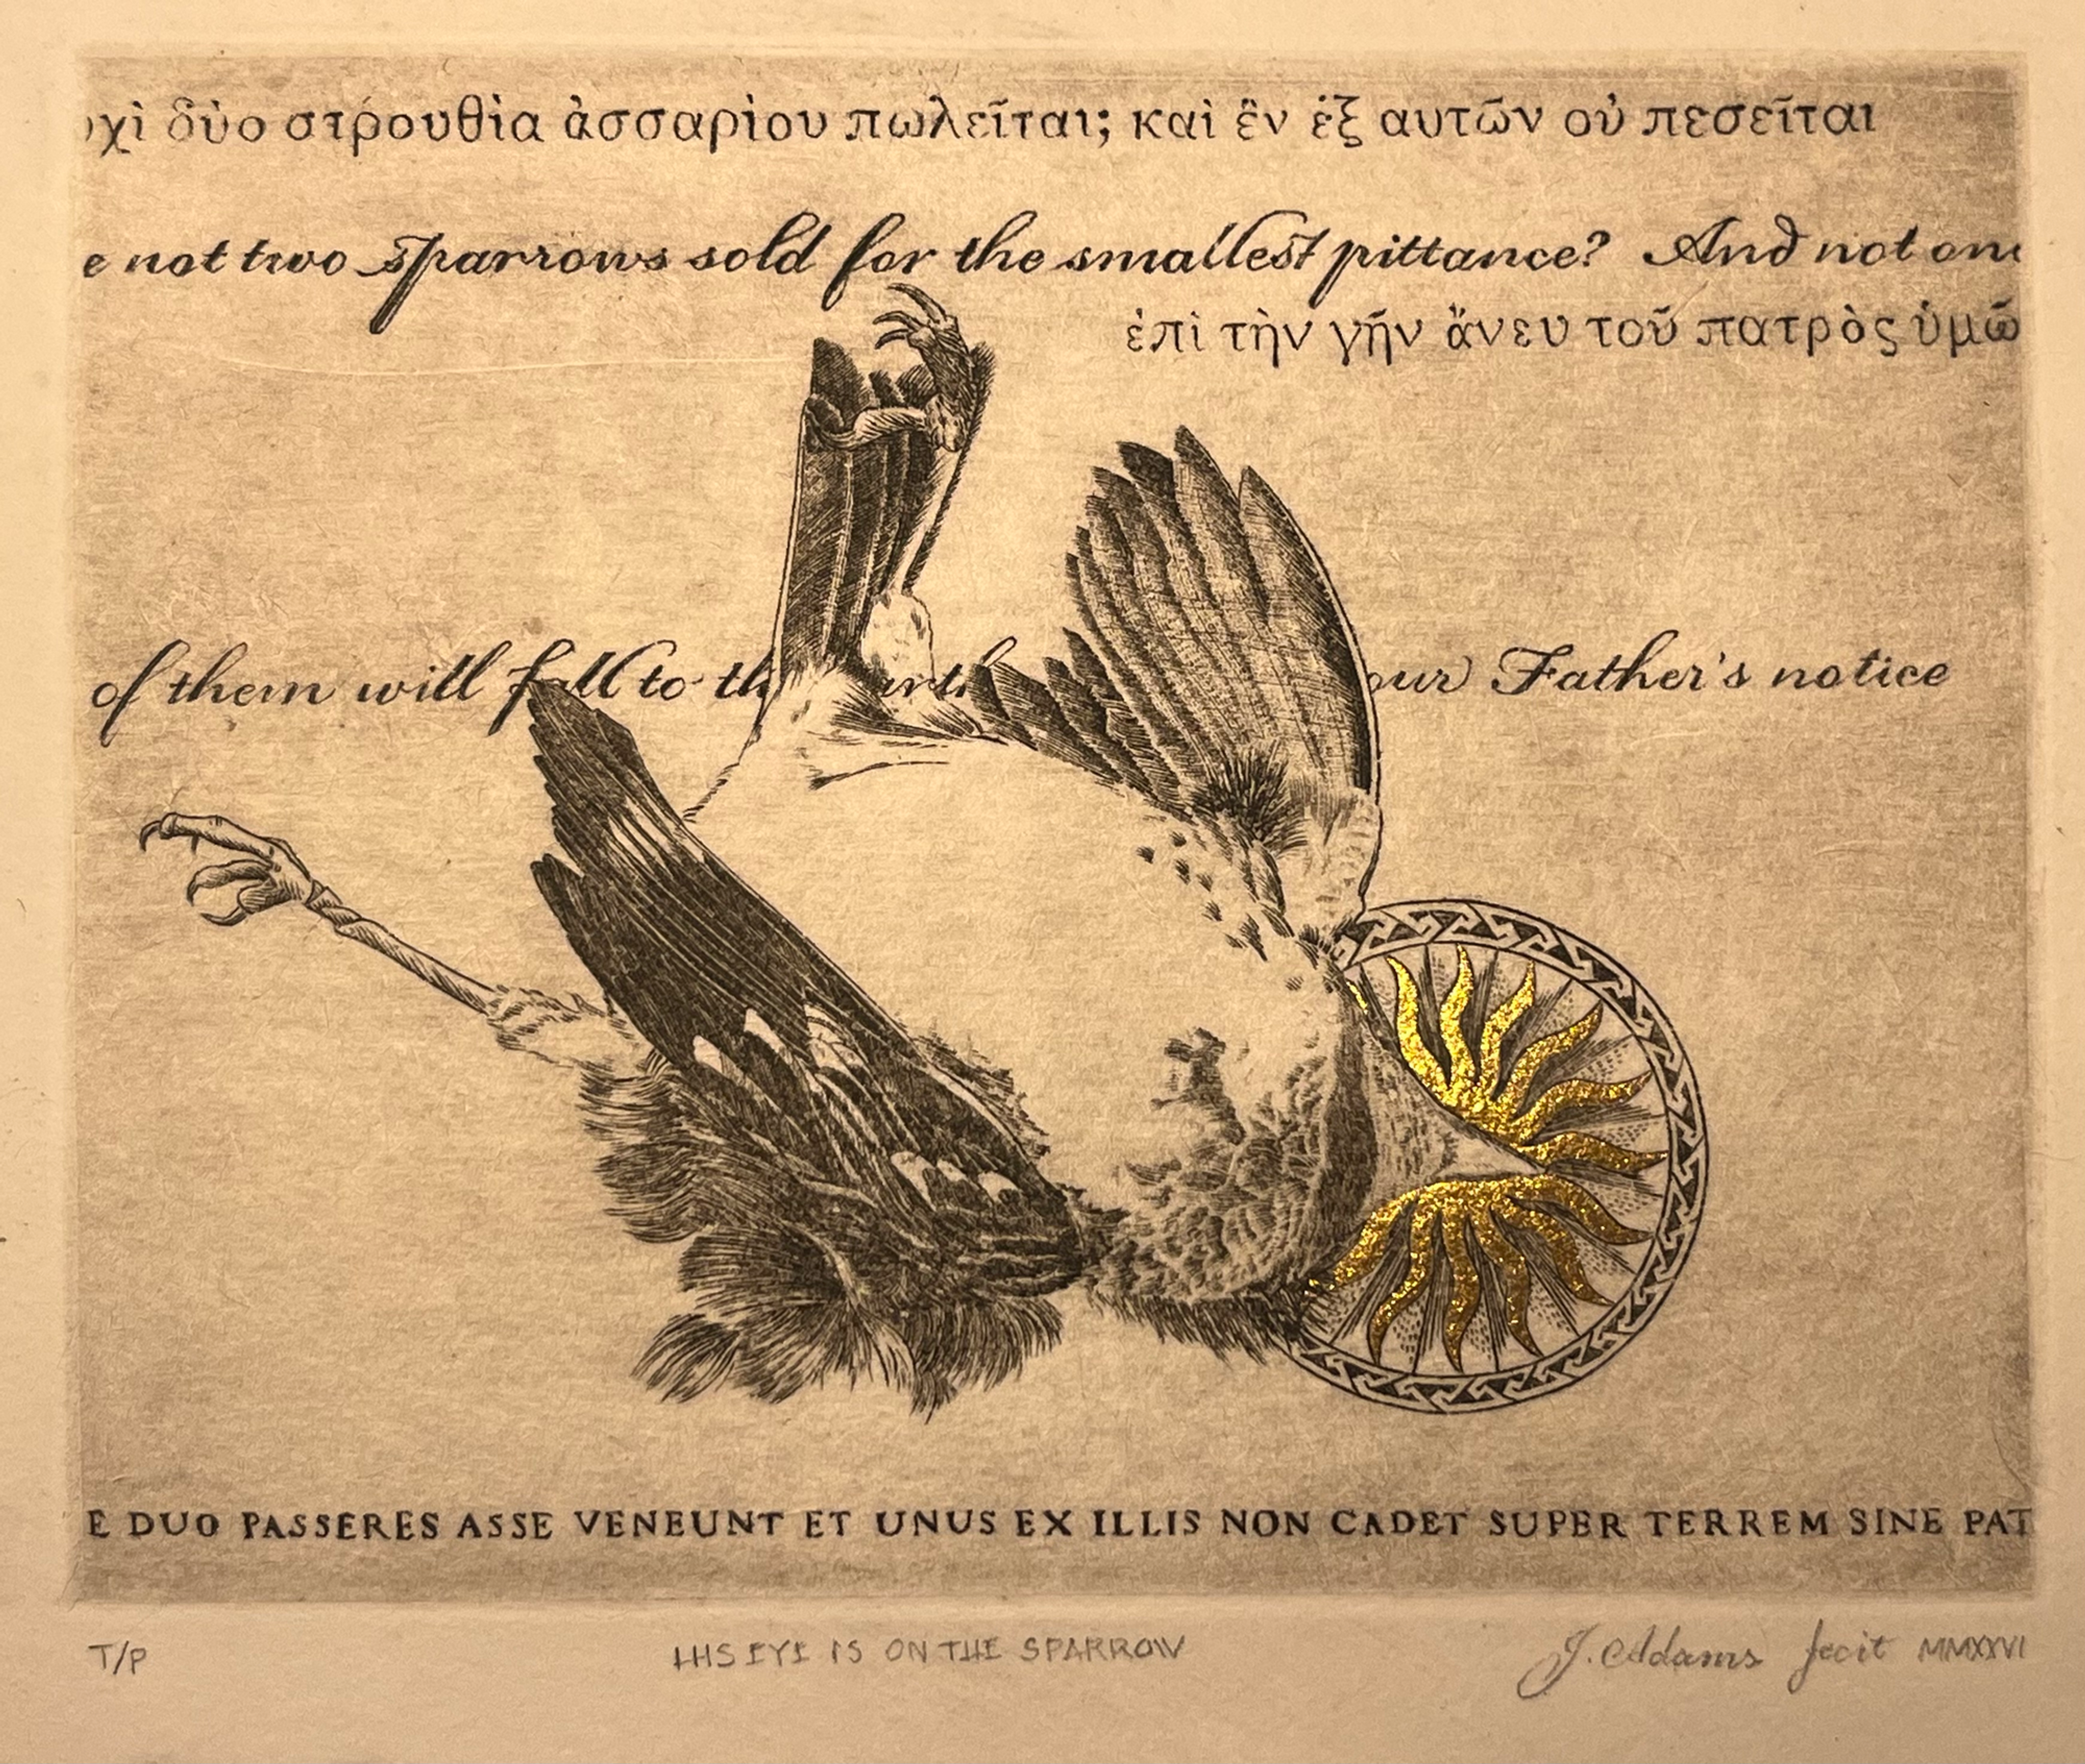 χὶ δύο στρουθία ἀσσαρίου πωλεῖται; καὶ ἓν ἐξ αυτῶν οὐ πεσεῖται
e not two sparrows sold for the smallest pittance? And not one
ἐπὶ τὴν γῆν ἄνευ τοῦ πατρὸς ὑμῶ
of them will fall to th arth our Father's notice
E DUO PASSERES ASSE VENEUNT ET UNUS EX ILLIS NON CADET SUPER TERREM SINE PAT
T/P HIS EYE IS ON THE SPARROW J. Adams fecit MMXXVI